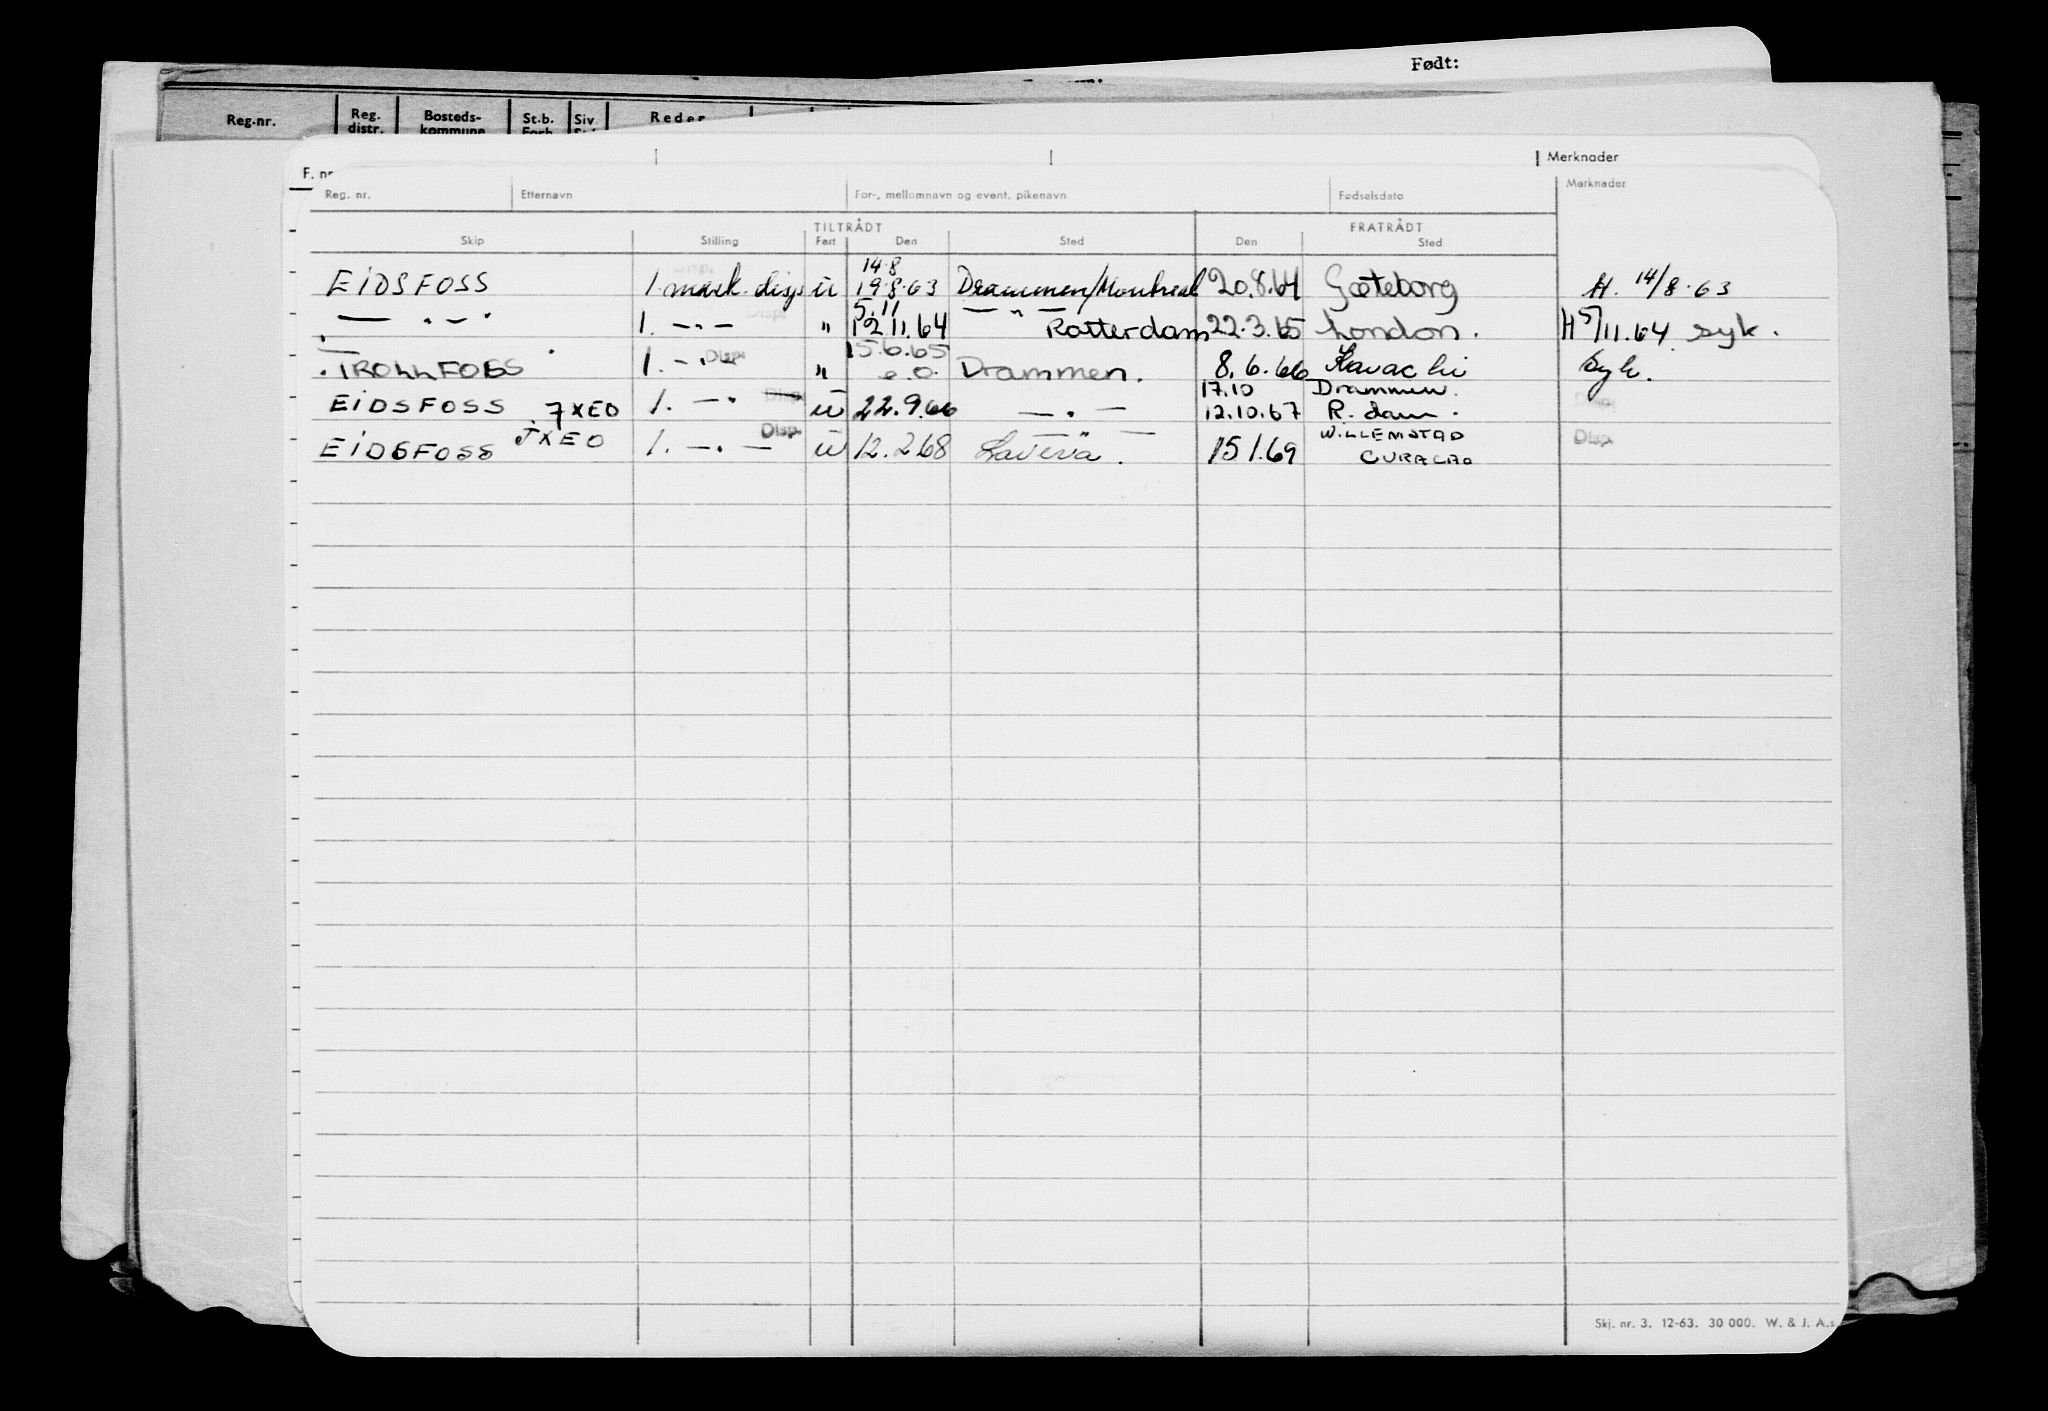 Født:
Reg.nr. Reg. distr. Bosteds- kommune St.b. Siv Reder
F. nr Merknader
Reg. nr. Etternavn For-, mellomnavn og event. pikenavn Fødselsdato Merknader
TILTRÅDT FRATRÅDT
Skip Stilling Fart Den Sted Den Sted
14.8
EIDSFOSS 1. mask. disp u 19.8.63 Drammen/Montreal 20.8.64 Gøteborg H. 14/8.63
5.11 — " —
— " — 1. — " — Disp. " 12 11.64 Rotterdam 22.3.65 London. H 5/11.64 syk.
15.6.65
TROLLFOSS 1. — " — Disp. " e.o. Drammen. 8.6.66 Karachi Syk.
17.10 Drammen.
EIDSFOSS JXEO 1. — " — Disp u 22.9.66 — " — 12.10.67 R.dam. Disp
WILLEMSTAD
EIDSFOSS JXEO 1. — " — Disp. u 12.2.68 15 1.69 CURACAO Disp.
Skj. nr. 3. 12-63. 30 000. W. & J. A.s